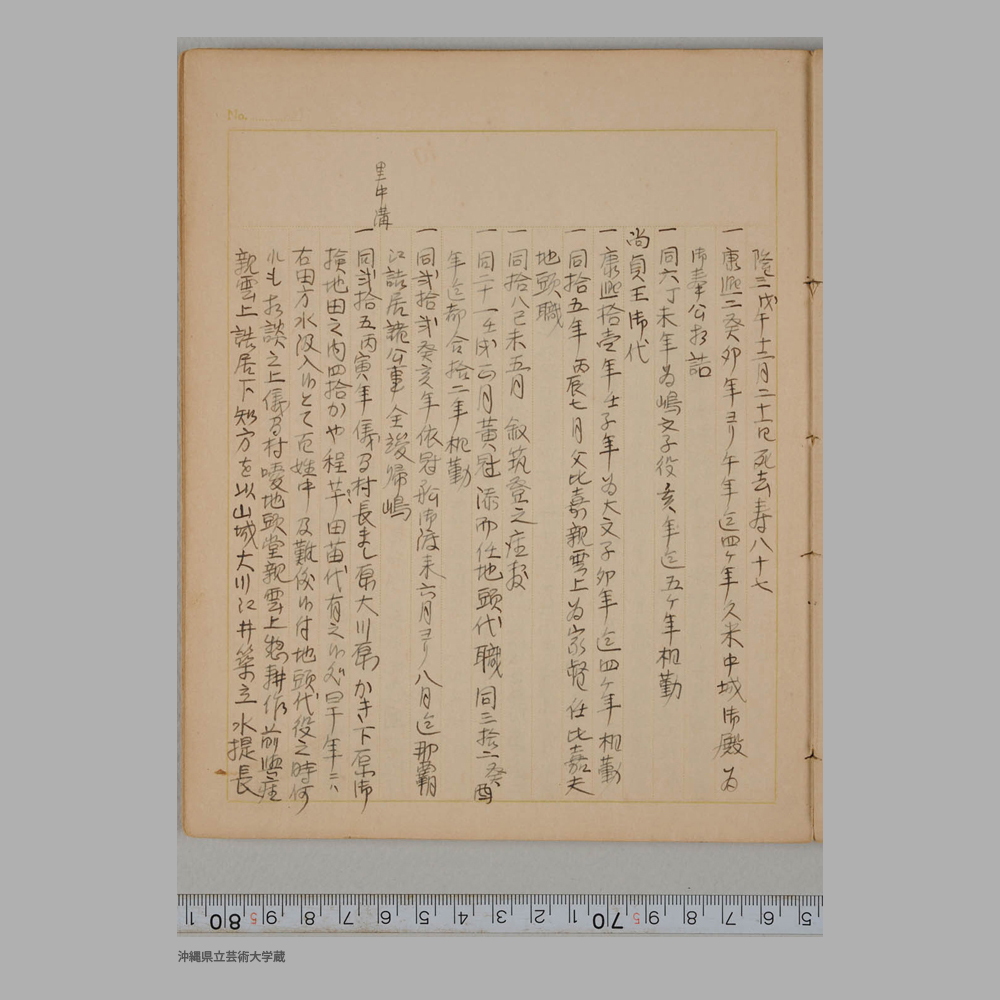 隆三戊午十二月二十一日死去寿八十七
一康熙二癸卯年ヨリ午年迄四ケ年久米中城御殿為
御奉公相詰
一同六丁未年為嶋文子役亥年迄五ケ年相勤
尚貞王御代
一康熙拾壱年壬子年為大文子卯年迄四ケ年相勤
一同拾五年丙辰七月父比嘉親雲上為家督任比嘉夫
地頭職
一同拾八己未五月叙筑登之座敷
一同二十一壬戌四月黄冠添而任地頭代職同三拾二癸酉
年迄都合拾二年相勤
一同弐拾弐癸亥年依冠船御渡来六月ヨリ八月迄那覇
江詰居諸公事全竣帰嶋
里中溝
一同弐拾五丙寅年儀間村長まし原大川原かきい下原御
検地田之内四拾かや程芋田苗代有之候処旱年ニハ
右田方水没入候とて百姓中及難儀候付地頭代役之時何
れも相談之上儀間村嘜地頭堂親雲上惣耕作前與座
親雲上詰居下知方を以山城大川江井築立水堤長
No.
1 80 5 9 8 7 6 5 4 3 2 1 70 5 9 8 7 6 5
沖縄県立芸術大学蔵